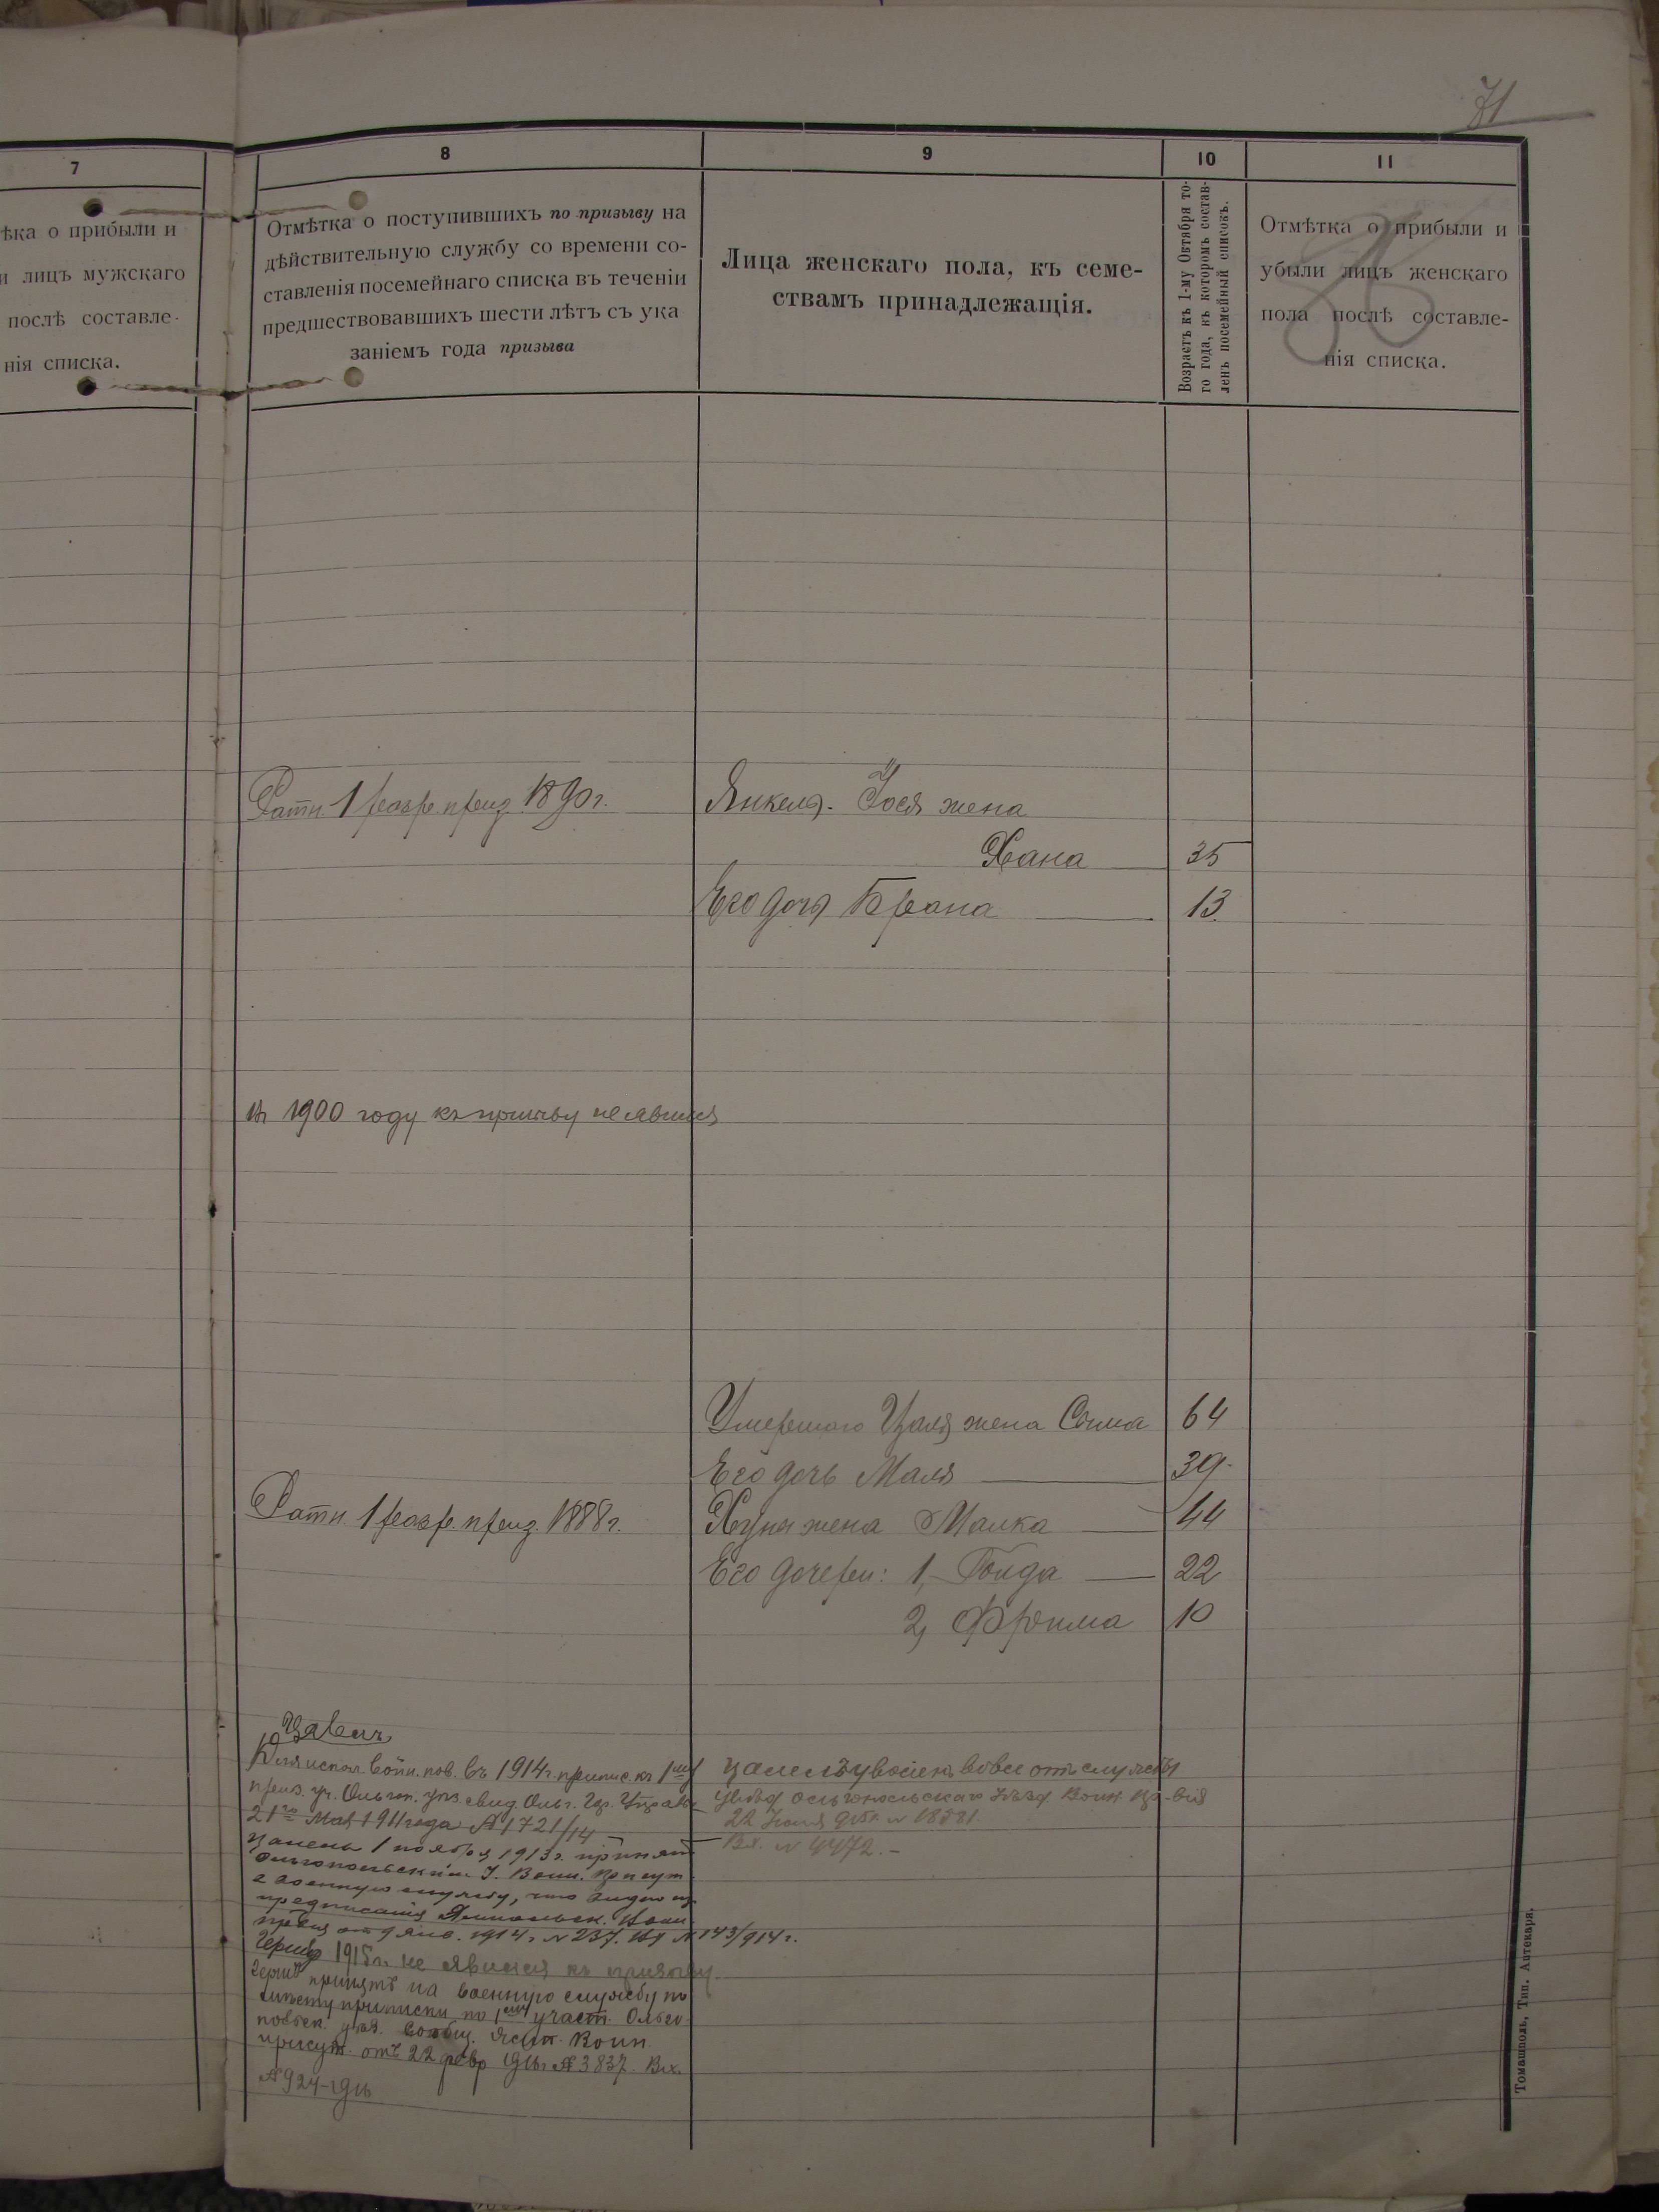 71
7
ѣка о прибыли и
и лицъ мужскаго
послѣ составле-
нія списка.
8
Отмѣтка о поступившихъ по призыву на
дѣйствительную службу со времени со-
ставленія посемейнаго списка въ теченіи
предшествовавшихъ шести лѣтъ съ ука
заніемъ года призыва
9
Лица женскаго пола, къ семе-
ствамъ принадлежащія.
10
Возрастъ къ 1-му Октября то-
го года, къ которомъ состав-
ленъ посемейный списокъ.
11
Отмѣтка о прибыли и
убыли лицъ женскаго
пола послѣ составле-
нія списка.
Ратн. 1 разр. приз. 1890 г.
Янкеля-Іося жена
Хана 35
Его дочь Брана 13
въ 1900 году къ призыву не явился
Умершаго жена Сима 64
Его дочь Маля 39
Ратн. 1 разр. приз. 1888 г.
жена Малка 44
Его дочери: 1, Гольда 22
2, 10
Для испол воин. пов. въ 1914 г. припис. къ 1му
приз. уч. Ольгоп. уѣз. свид. Ольг. Гор. Управы
21го Мая 1911 года № 1721/14
1 ноября 1913 г. принят
Ольгопольскимъ У. Воин. Присут
военную службу, что видно из
предписанія Ямпольск. Воин
от 9 янв. 1914 г. № 237. Вх № 143/914 г.
1915 г. не явился къ призыву.
принятъ на военную службу по
приписки по 1му участ. Ольго
уѣз. сообщ. Воин.
присут. отъ 22 февр 1916 г. № 3837. Вх.
№ 924-1916
вовсе отъ службы
Воин.
22 Іюня № 18881.
Вх. № 4472.-
Томашполь, Тип. Аптекаря.